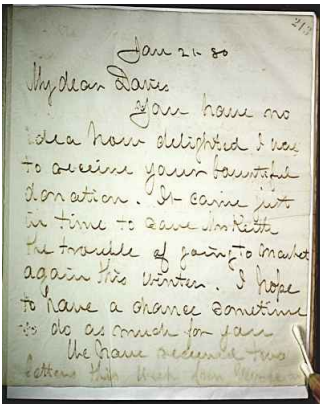 213
Jan 21 80
My dear Davis
You have no
idea how delighted I was
to receive your bountiful
donation. It came just
in time to save Mr Keith
the trouble of going to market
again this winter. I hope
to have a chance sometime
to do as much for you
We have received two
letters this week from